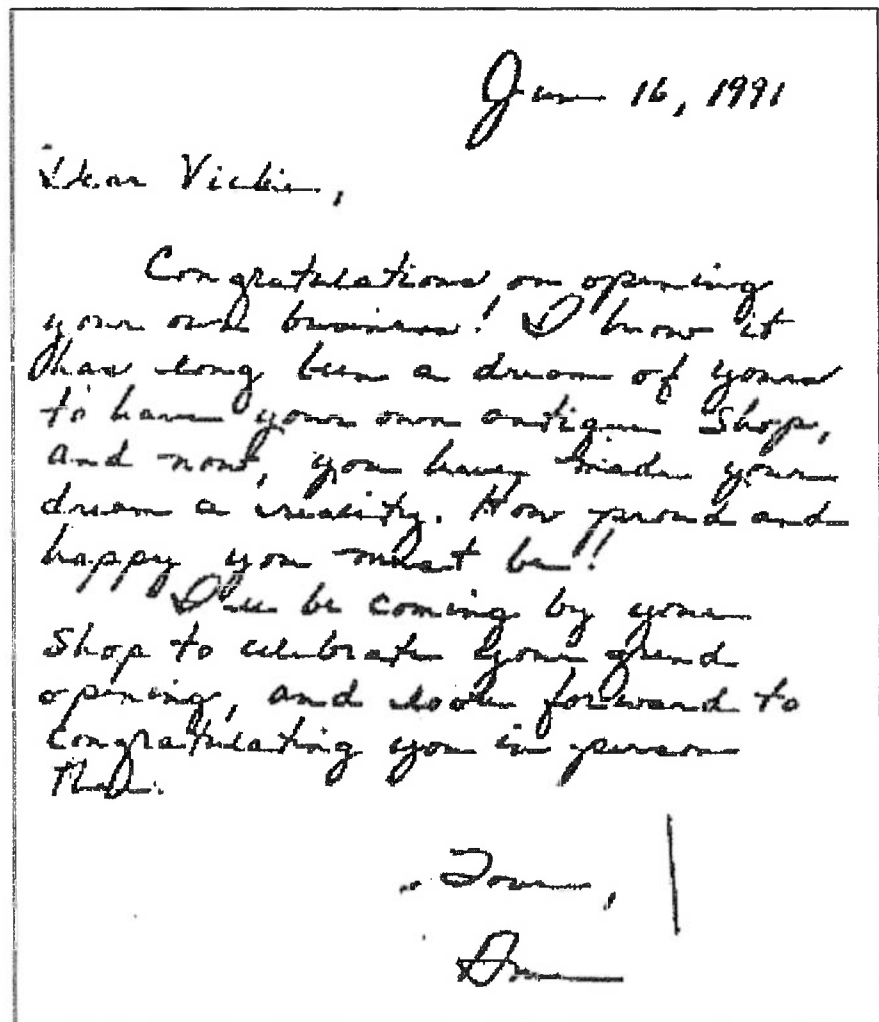 June 16, 1991
Dear Vickie,
Congratulations on opening
your own business! I know it
has long been a dream of yours
to have your own antique shop,
and now, you have made your
dream a reality. How proud and
happy you must be!
I'll be coming by your
shop to celebrate your grand
opening, and look forward to
congratulating you in person
then.
Love,